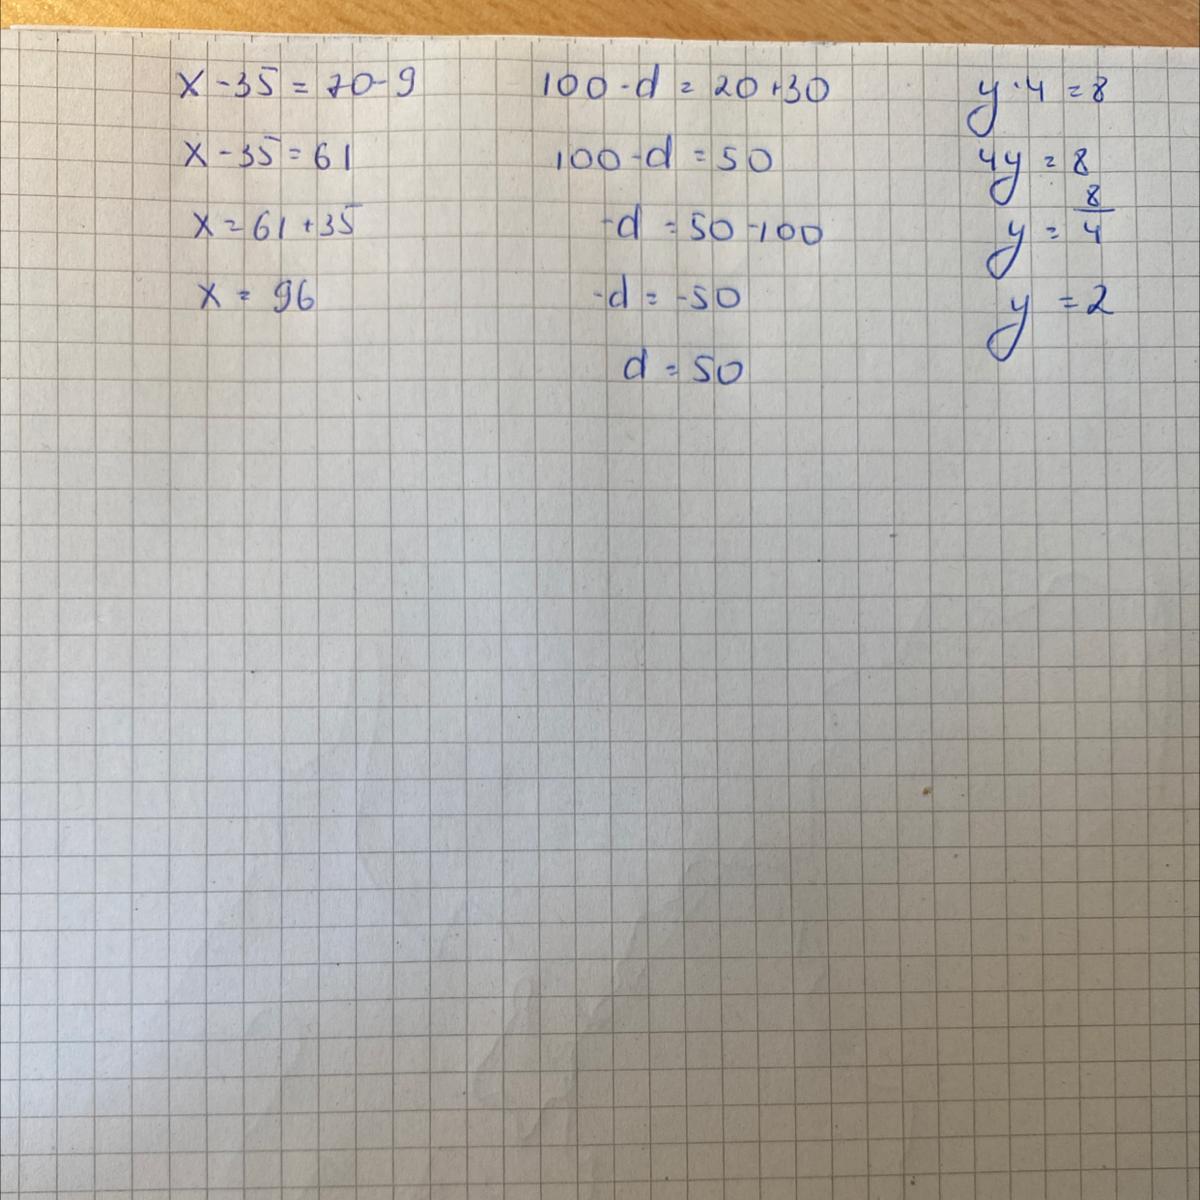 x - 35 = 70 - 9
x - 35 = 61
x = 61 + 35
x = 96
100 - d = 20 + 30
100 - d = 50
-d = 50 - 100
-d = -50
d = 50
y · 4 = 8
4y = 8
y = 8/4
y = 2